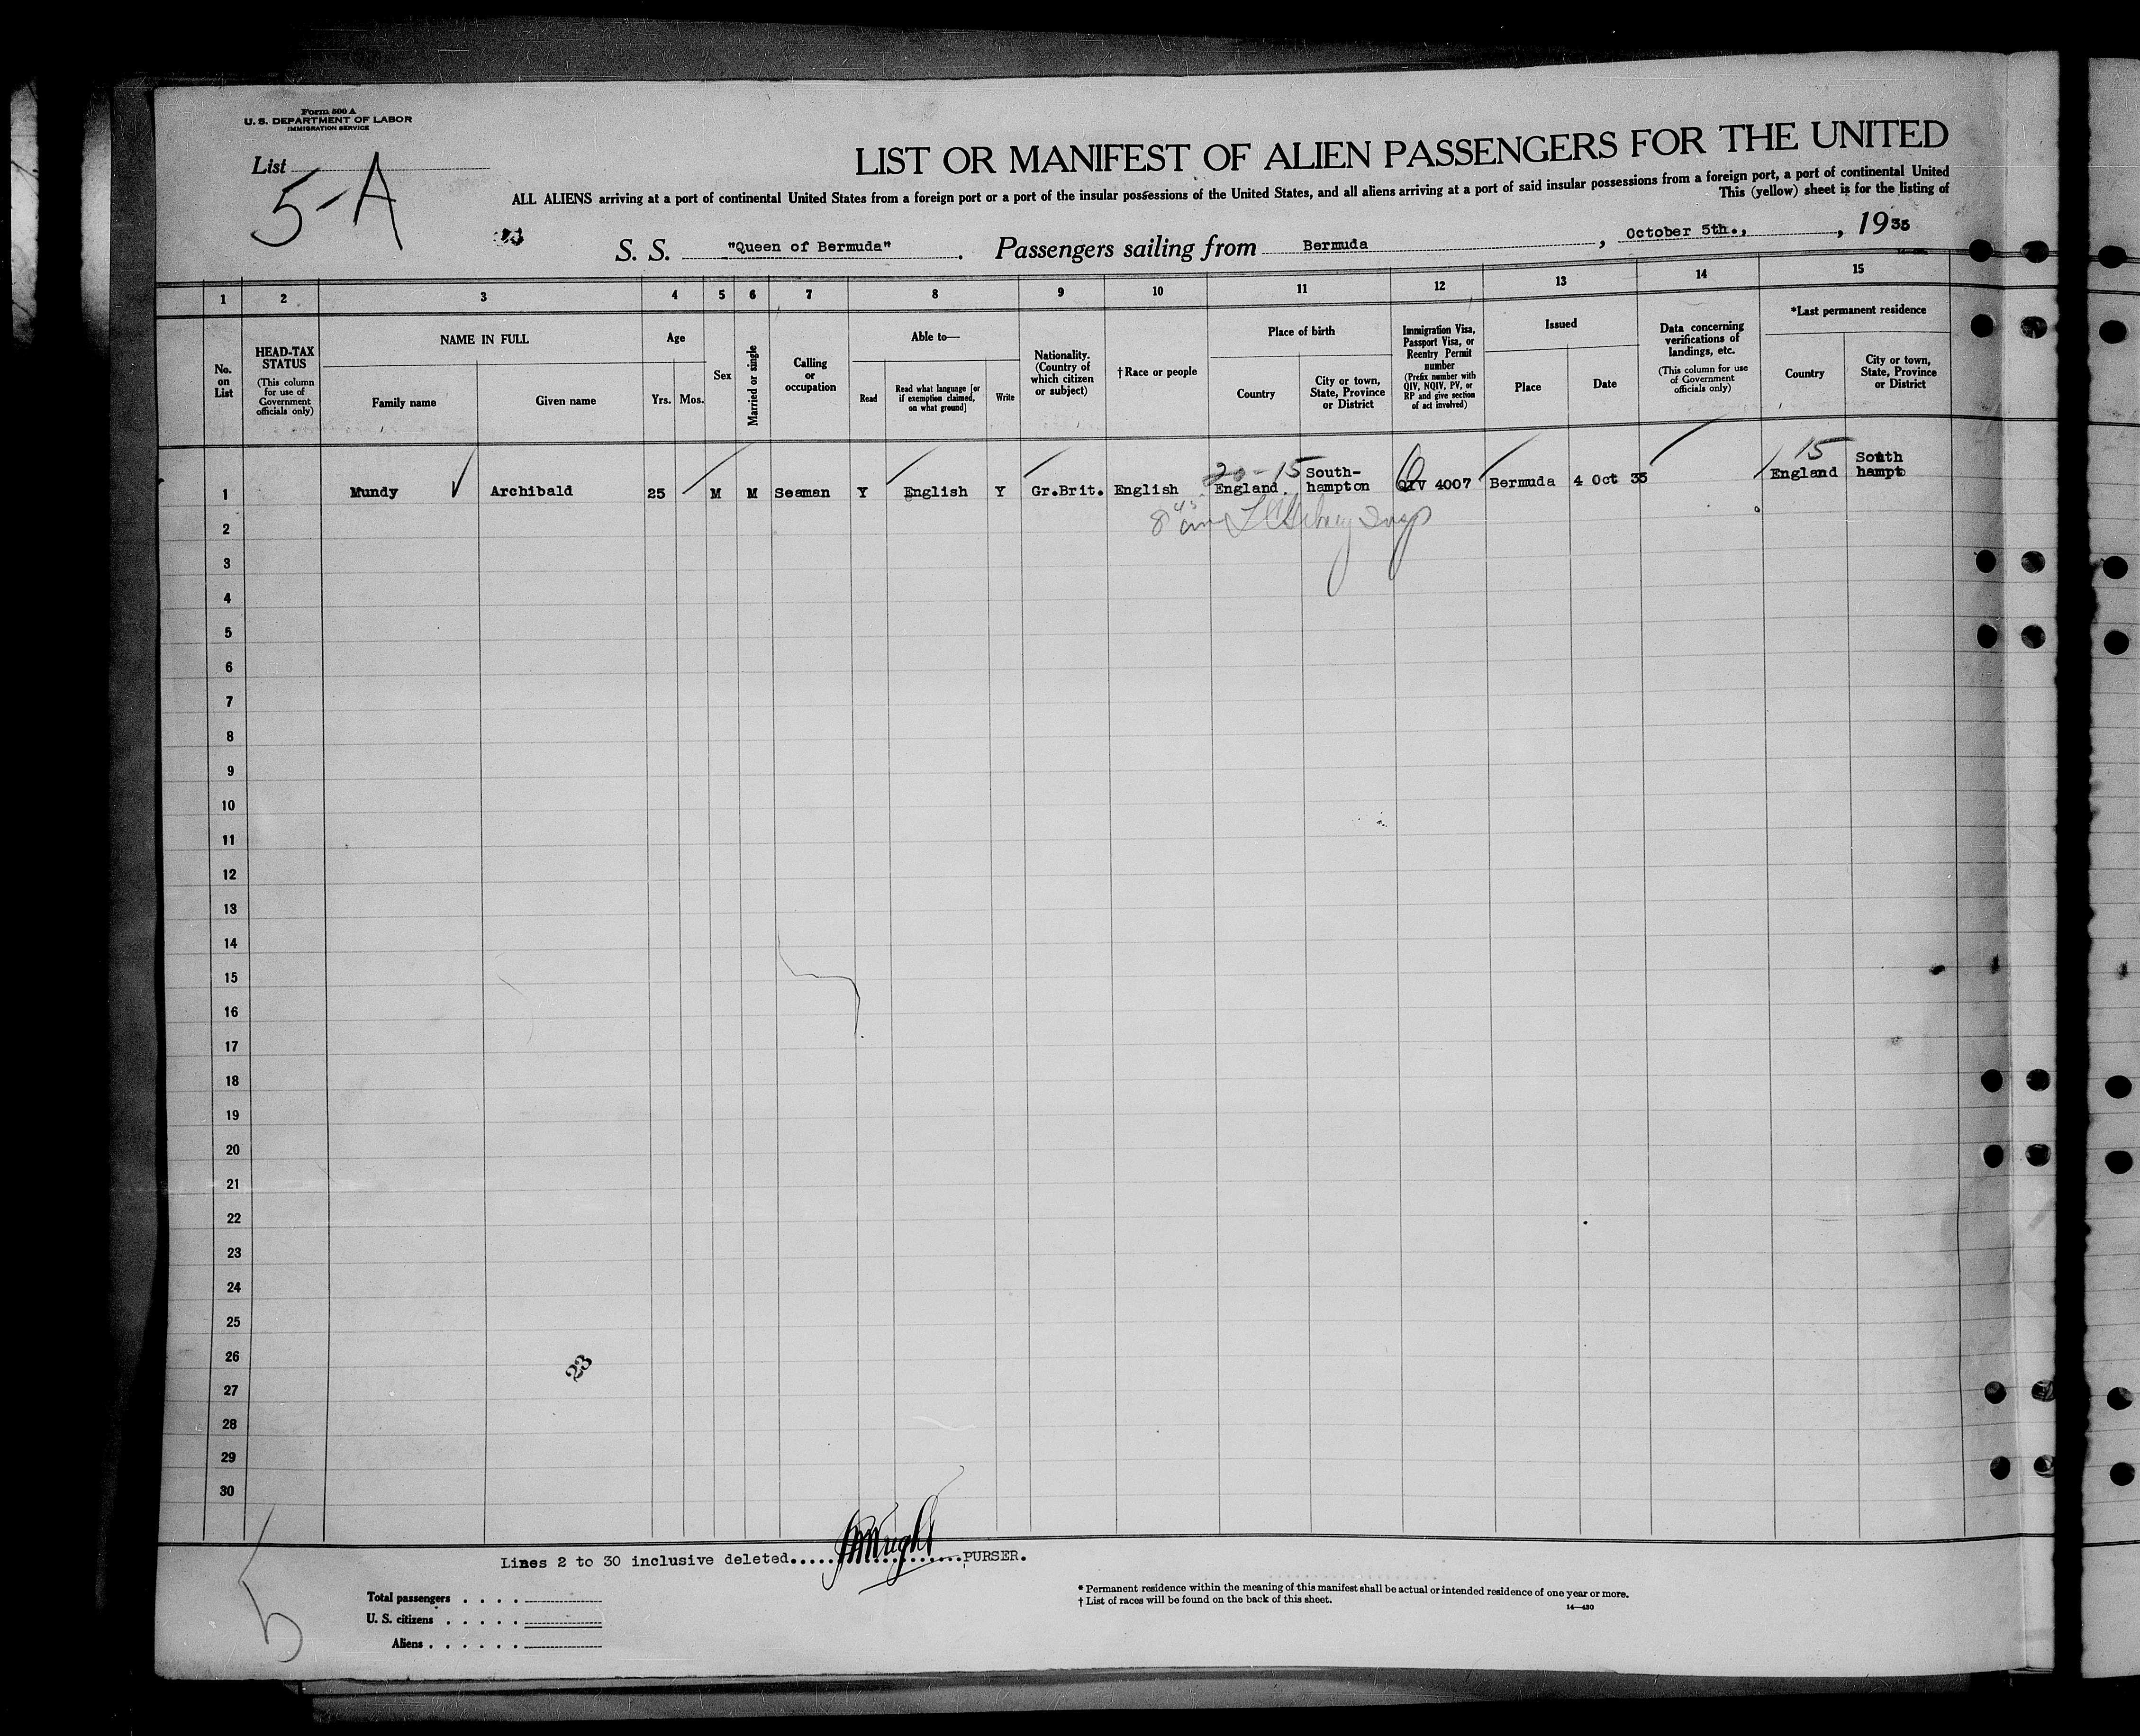 Form 500 A
U. S. DEPARTMENT OF LABOR
IMMIGRATION SERVICE
List 5-A
LIST OR MANIFEST OF ALIEN PASSENGERS FOR THE UNITED
ALL ALIENS arriving at a port of continental United States from a foreign port or a port of the insular possessions of the United States, and all aliens arriving at a port of said insular possessions from a foreign port, a port of continental United
This (yellow) sheet is for the listing of
S. S. "Queen of Bermuda". Passengers sailing from Bermuda, October 5th., , 1935
1 2 3 4 5 6 7 8 9 10 11 12 13 14 15
No. on List
HEAD-TAX STATUS
(This column for use of Government officials only)
NAME IN FULL
Family name
Given name
Age
Yrs. Mos.
Sex
Married or single
Calling or occupation
Able to—
Read
Read what language [or if exemption claimed, on what ground]
Write
Nationality. (Country of which citizen or subject)
†Race or people
Place of birth
Country
City or town, State, Province or District
Immigration Visa, Passport Visa, or Reentry Permit number
(Prefix number with QIV, NQIV, PV, or RP and give section of act involved)
Issued
Place
Date
Data concerning verifications of landings, etc.
(This column for use of Government officials only)
*Last permanent residence
Country
City or town, State, Province or District
20-15
15
1 Mundy Archibald 25 M M Seaman Y English Y Gr.Brit. English England South-hampton QIV 4007 Bermuda 4 Oct 35 England South hampto
2
3
4
5
6
7
8
9
10
11
12
13
14
15
16
17
18
19
20
21
22
23
24
25
26
23
27
28
29
30
Lines 2 to 30 inclusive deleted..........PURSER.
Total passengers . . . .
U. S. citizens . . . . .
Aliens . . . . . .
* Permanent residence within the meaning of this manifest shall be actual or intended residence of one year or more.
† List of races will be found on the back of this sheet.
14—430
5